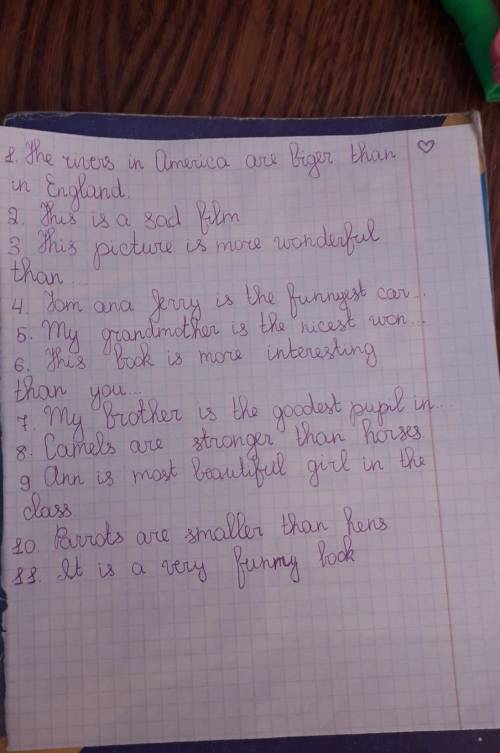 1. The rivers in America are biger than
in England.
2. This is a sad film
3. This picture is more wonderful
than...
4. Tom ana Jerry is the funnyest car...
5. My grandmother is the nicest won...
6. This book is more interesting
than you...
7. My brother is the goodest pupil in...
8. Camels are stronger than horses
9 Ann is most beautiful girl in the
class
10. Parrots are smaller than hens
11. It is a very funmy book